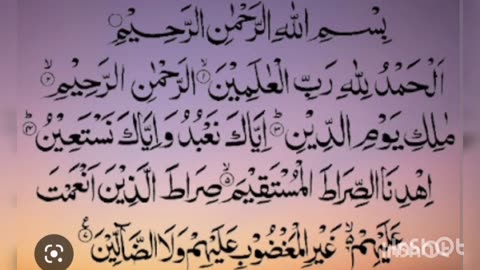 بِسْمِ اللهِ الرَّحْمٰنِ الرَّحِيْمِ
اَلْحَمْدُ لِلّٰهِ رَبِّ الْعٰلَمِيْنَ ۙ﴿۱﴾ الرَّحْمٰنِ الرَّحِيْمِ ۙ﴿۲﴾
مٰلِكِ يَوْمِ الدِّيْنِ ؕ﴿۳﴾ اِيَّاكَ نَعْبُدُ وَاِيَّاكَ نَسْتَعِيْنُ ؕ﴿۴﴾
اِهْدِنَا الصِّرَاطَ الْمُسْتَقِيْمَ ۙ﴿۵﴾ صِرَاطَ الَّذِيْنَ اَنْعَمْتَ
عَلَيْهِمْ ۙ۬﴿۶﴾ غَيْرِ الْمَغْضُوْبِ عَلَيْهِمْ وَلَا الضَّآلِّيْنَ ﴿۷﴾
InShOt